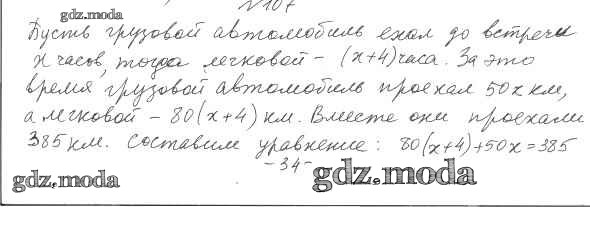 №107
gdz.moda
Пусть грузовой автомобиль ехал до встречи
x часов, тогда легковой – (x+4) часа. За это
время грузовой автомобиль проехал 50x км,
а легковой – 80(x+4) км. Вместе они проехали
385 км. Составим уравнение: 80(x+4)+50x=385
-34-
gdz.moda gdz.moda